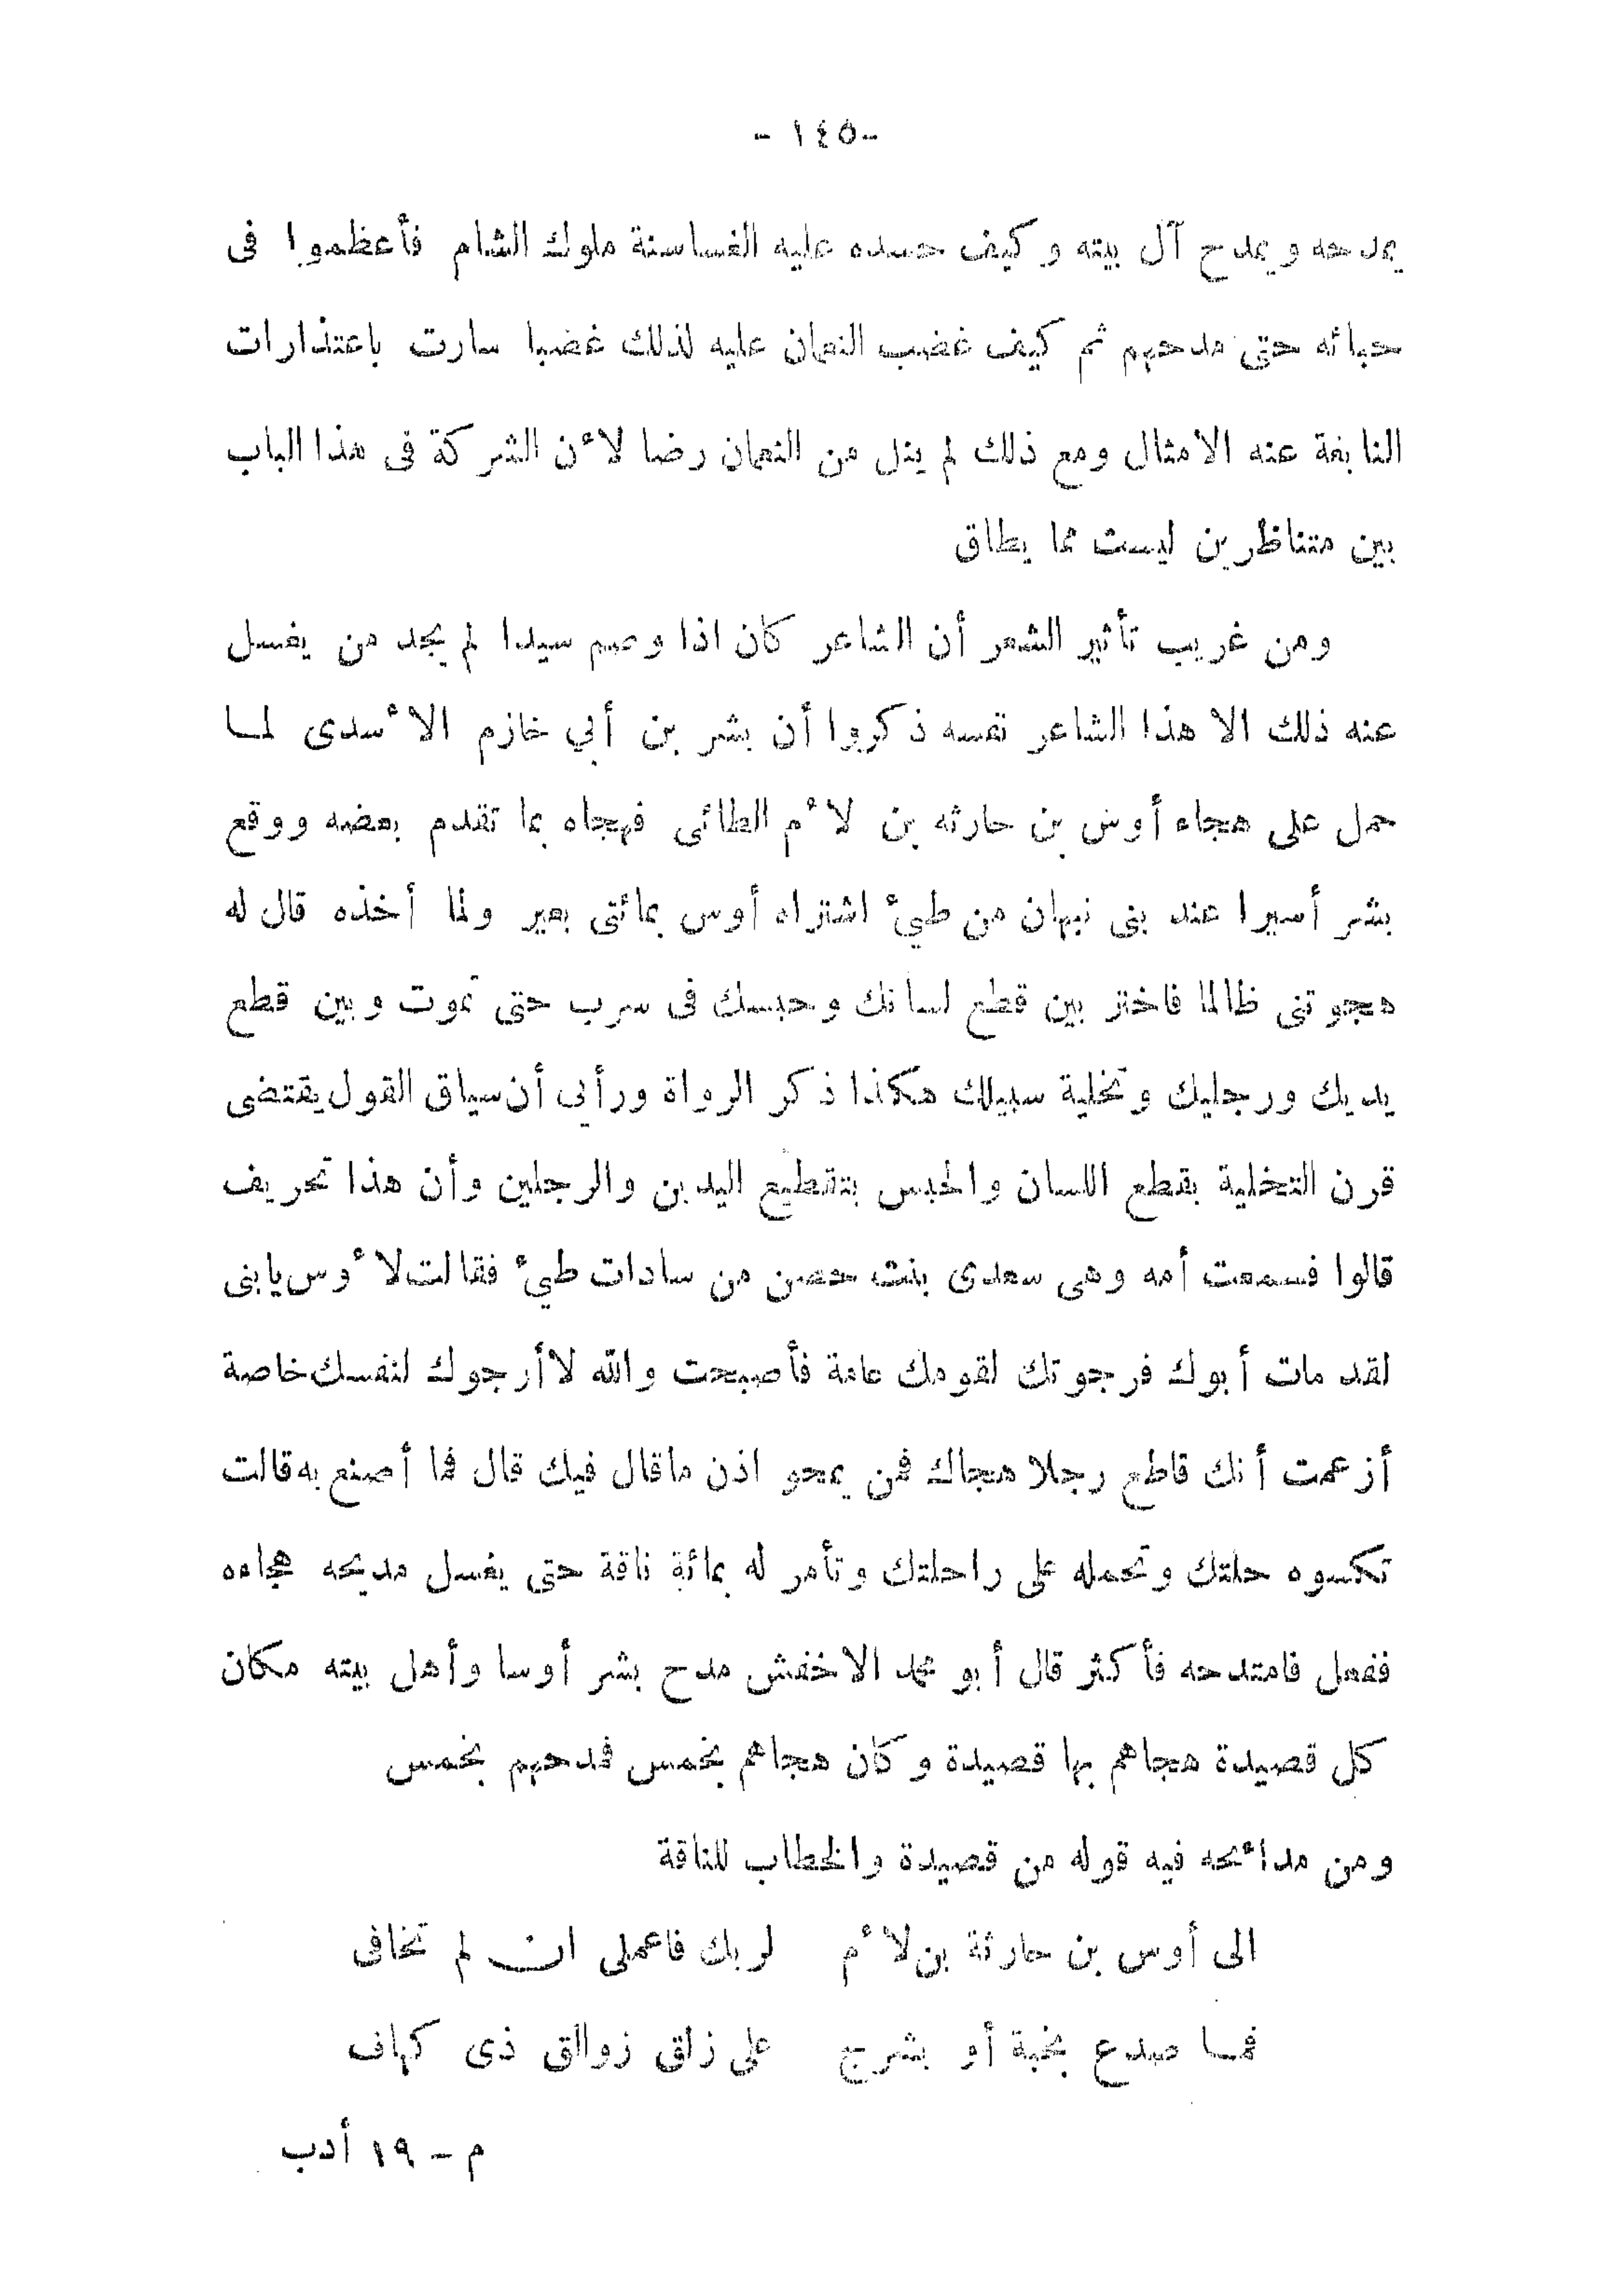 - ١٤٥ -
يمدحه ويمدح آل بيته وكيف حسده عليه الغساسنة ملوك الشام فأعظموا فى
حبائه حتى مدحهم ثم كيف غضب النعمان عليه لذلك غضبا سارت باعتذارات
النابغة عنه الامثال ومع ذلك لم ينل من النعمان رضا لأن الشركة فى هذا الباب
بين متناظرين ليست مما يطاق
ومن غريب تأثير الشعر أن الشاعر كان اذا وصم سيدا لم يجد من يغسل
عنه ذلك الا هذا الشاعر نفسه ذكروا أن بشر بن أبي خازم الأسدى لما
حمل على هجاء أوس بن حارثه بن لأم الطائى فهجاه بما تقدم بعضه ووقع
بشر أسيرا عند بنى نبهان من طيئ اشتراه أوس بمائتى بعير ولما أخذه قال له
هجوتنى ظالما فاختر بين قطع لسانك وحبسك فى سرب حتى تموت وبين قطع
يديك ورجليك وتخلية سبيلك هكذا ذكر الرواة ورأيى أن سياق القول يقتضى
قرن التخلية بقطع اللسان والحبس بتقطيع اليدين والرجلين وأن هذا تحريف
قالوا فسمعت أمه وهى سعدى بنت حصن من سادات طيئ فقالت لأوس يابنى
لقد مات أبوك فرجوتك لقومك عامة فأصبحت والله لا أرجوك لنفسك خاصة
أزعمت أنك قاطع رجلا هجاك فمن يمحو اذن ماقال فيك قال فما أصنع به قالت
تكسوه حلتك وتحمله على راحلتك وتأمر له بمائة ناقة حتى يغسل مديحه هجاءه
ففعل فامتدحه فأكثر قال أبو محمد الاخفش مدح بشر أوسا وأهل بيته مكان
كل قصيدة هجاهم بها قصيدة وكان هجاهم بخمس فمدحهم بخمس
ومن مدائحه فيه قوله من قصيدة والخطاب للناقة
الى أوس بن حارثة بن لأم لربك فاعملى ان لم تخافى
فما صدع بخبة أو بشرج على زلق زوالق ذى كهاف
م - ١٩ أدب